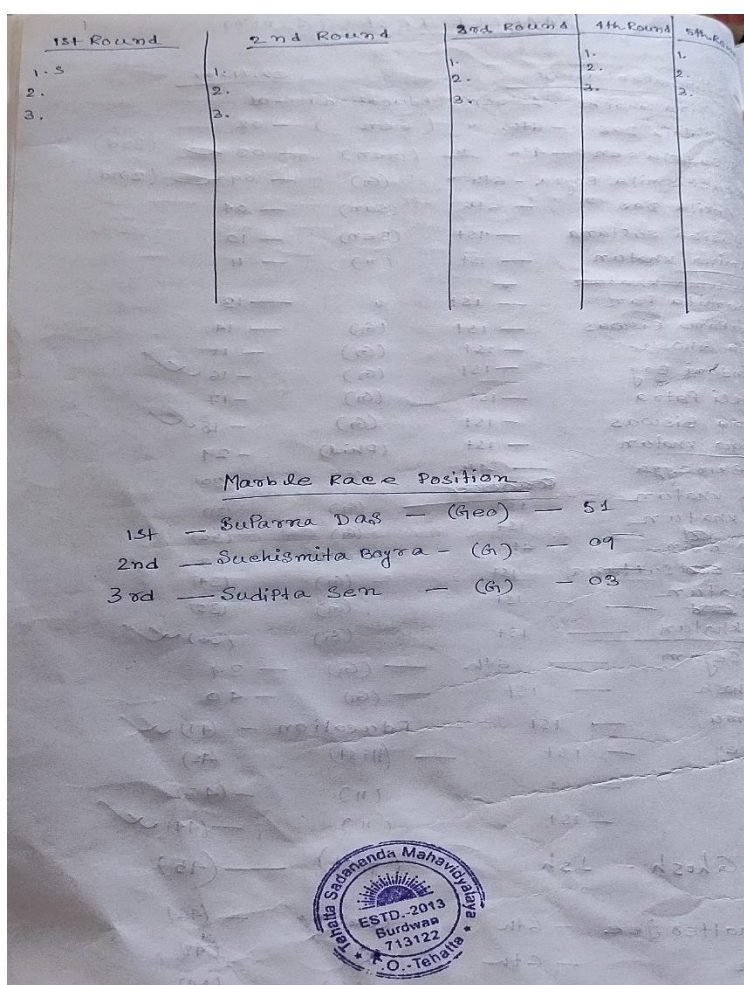 1st Round 2nd Round 3rd Round 4th Round 5th Round
1. S
2.
3.
1.
2.
3.
1.
2.
3.
1.
2.
3.
1.
2.
3.
Marble Race Position
1st — Suparna Das — (Geo) — 51
2nd — Suchismita Bayra — (G) — 09
3rd — Sudipta Sen — (G) — 03
Tehatta Sadananda Mahavidyalaya
ESTD.-2013
Burdwan
713122
P.O.-Tehatta